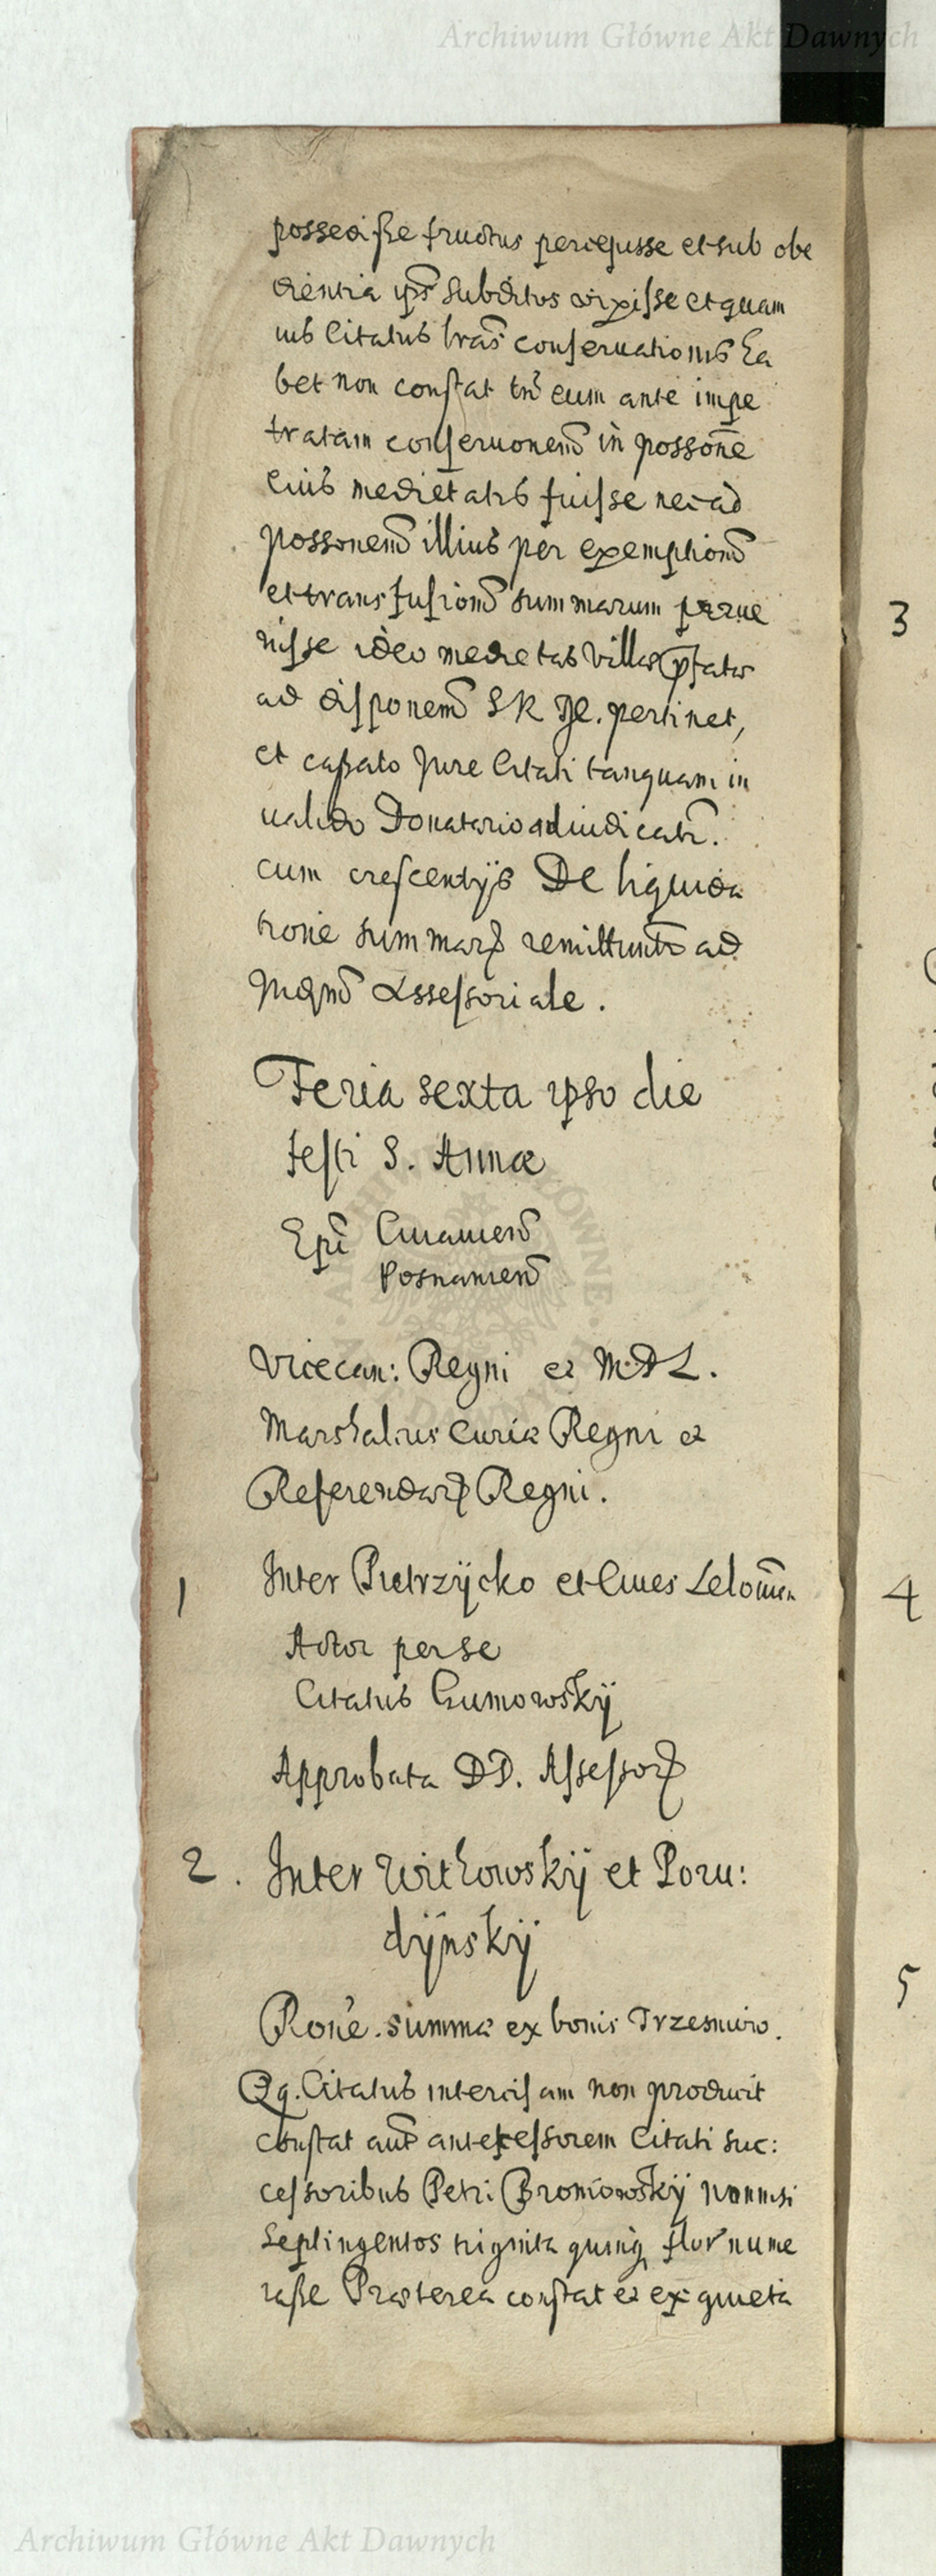 Archiwum Główne Akt Dawnych
possedisse fructus percepisse et sub obe
dientia ips subditos vixisse et quam
uis Citatus lras conseruationis ha
bet non constat tn eum ante impe
tratam conseruonem in possone
eius medietatis fuisse nec ad
possonem illius per exemptionem
et transfusionem summarum perue
nisse ideo medietas villae pfatae
ad disponem S R M. pertinet,
et cassato Jure Citati tanquam in
ualido Donatario adiudicatr.
cum crescentijs De liquida
tione summarum remittuntr ad
Assessoriale.
Feria sexta ipso die
festi S. Annae
Epi Cuiauien
Posnanien
Vicecan: Regni et M.D L.
Marshalcus Curiae Regni et
Referendar Regni.
1 Inter Pietrzÿcko et Ciues Lelouien
Actor per se
Citatus Gumowskÿ
Approbata DD. Assessor
2. Inter Witkowskÿ et Poru:
dÿnskÿ
Rone. summae ex bonis Trzesniow.
Qq. Citatus intercisam non producit
constat aut antecessorem Citati suc:
cessoribus Petri Bromiowskÿ nonnisi
septingentos triginta quinq flor nume
rasse Praeterea constat et ex quieta
3
4
5
Archiwum Główne Akt Dawnych